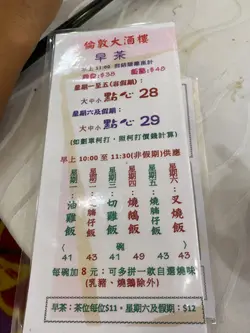 倫敦大酒樓
早茶
早上11:00 前結賬離座計
$38 $48
星期一至五(並假期):
大中小 點心 28
星期六及假期:
大中小 點心 29
(如劃單柯打,照柯打價錢計算)
早上 10:00 至 11:30(非假期)供應
星期一:油雞飯
星期二:腩仔飯
星期三:切雞飯
星期四:燒鵝飯
星期五:腩仔飯
星期六:叉燒飯
碗
41 43 41 49 43 43
每碗加 8 元:可多拼一款自選燒味
(乳豬、燒鵝除外)
早茶:茶位每位$11。星期六及假期:$12